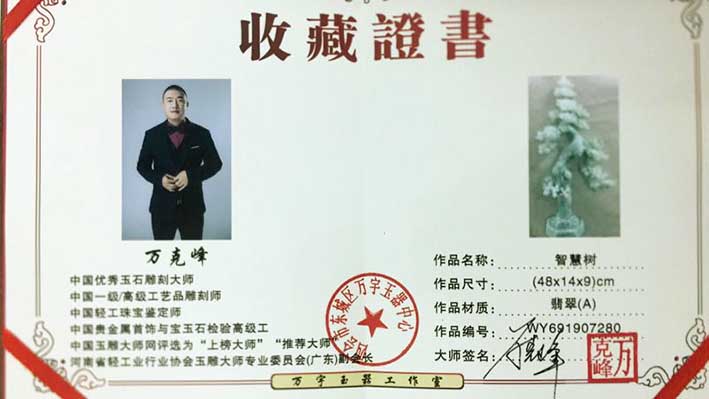 收藏證書
万克峰
中国优秀玉石雕刻大师
中国一级/高级工艺品雕刻师
中国轻工珠宝鉴定师
中国贵金属首饰与宝玉石检验高级工
中国玉雕大师网评选为“上榜大师”“推荐大师”
河南省轻工业行业协会玉雕大师专业委员会(广东)副会长
会市东城区万字玉器中心
作品名称: 智慧树
作品尺寸: (48x14x9)cm
作品材质: 翡翠(A)
作品编号: WY691907280
大师签名:
万克峰
万字玉器工作室